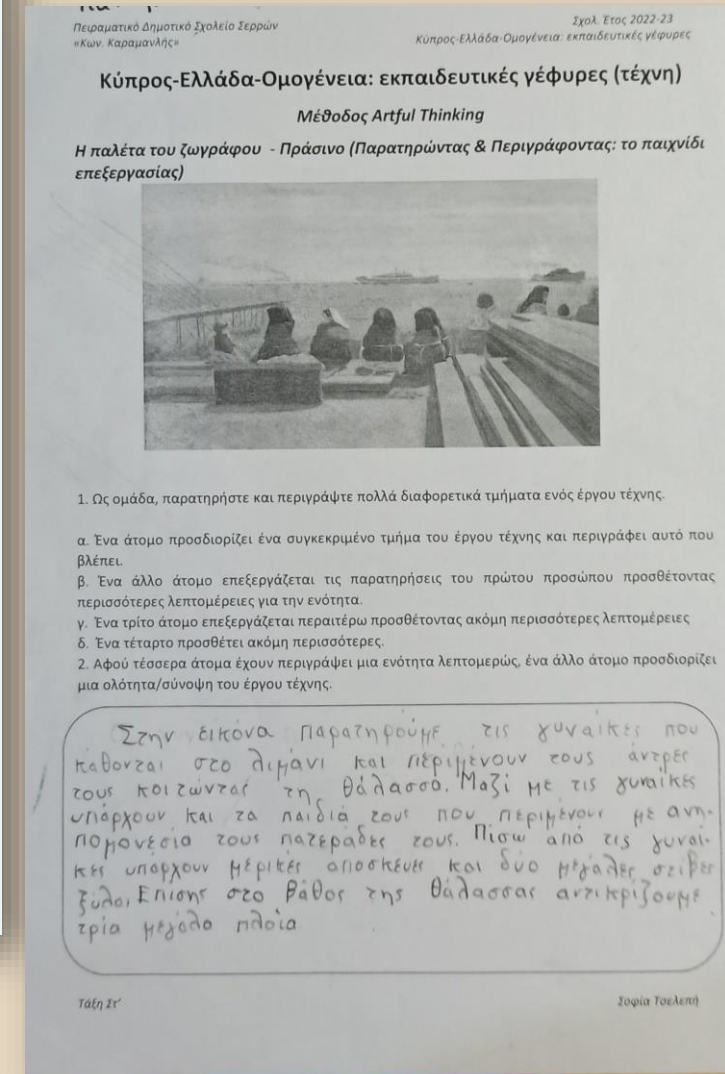 Πειραματικό Δημοτικό Σχολείο Σερρών
«Κων. Καραμανλής»
Σχολ. Έτος 2022-23
Κύπρος-Ελλάδα-Ομογένεια: εκπαιδευτικές γέφυρες
Κύπρος-Ελλάδα-Ομογένεια: εκπαιδευτικές γέφυρες (τέχνη)
Μέθοδος Artful Thinking
Η παλέτα του ζωγράφου - Πράσινο (Παρατηρώντας & Περιγράφοντας: το παιχνίδι
επεξεργασίας)
1. Ως ομάδα, παρατηρήστε και περιγράψτε πολλά διαφορετικά τμήματα ενός έργου τέχνης.
α. Ένα άτομο προσδιορίζει ένα συγκεκριμένο τμήμα του έργου τέχνης και περιγράφει αυτό που
βλέπει.
β. Ένα άλλο άτομο επεξεργάζεται τις παρατηρήσεις του πρώτου προσώπου προσθέτοντας
περισσότερες λεπτομέρειες για την ενότητα.
γ. Ένα τρίτο άτομο επεξεργάζεται περαιτέρω προσθέτοντας ακόμη περισσότερες λεπτομέρειες
δ. Ένα τέταρτο προσθέτει ακόμη περισσότερες.
2. Αφού τέσσερα άτομα έχουν περιγράψει μια ενότητα λεπτομερώς, ένα άλλο άτομο προσδιορίζει
μια ολότητα/σύνοψη του έργου τέχνης.
Στην εικόνα παρατηρούμε τις γυναίκες που
κάθονται στο λιμάνι και περιμένουν τους άντρες
τους κοιτώντας τη θάλασσα. Μαζί με τις γυναίκες
υπάρχουν και τα παιδιά τους που περιμένουν με ανη-
πομονεσία τους πατεράδες τους. Πίσω από τις γυναί-
κες υπάρχουν μερικές αποσκευές και δύο μεγάλες στίβες
ξύλα. Επίσης στο βάθος της θάλασσας αντικρίζουμε
τρία μεγάλα πλοία
Τάξη Στ'
Σοφία Τσελεπή